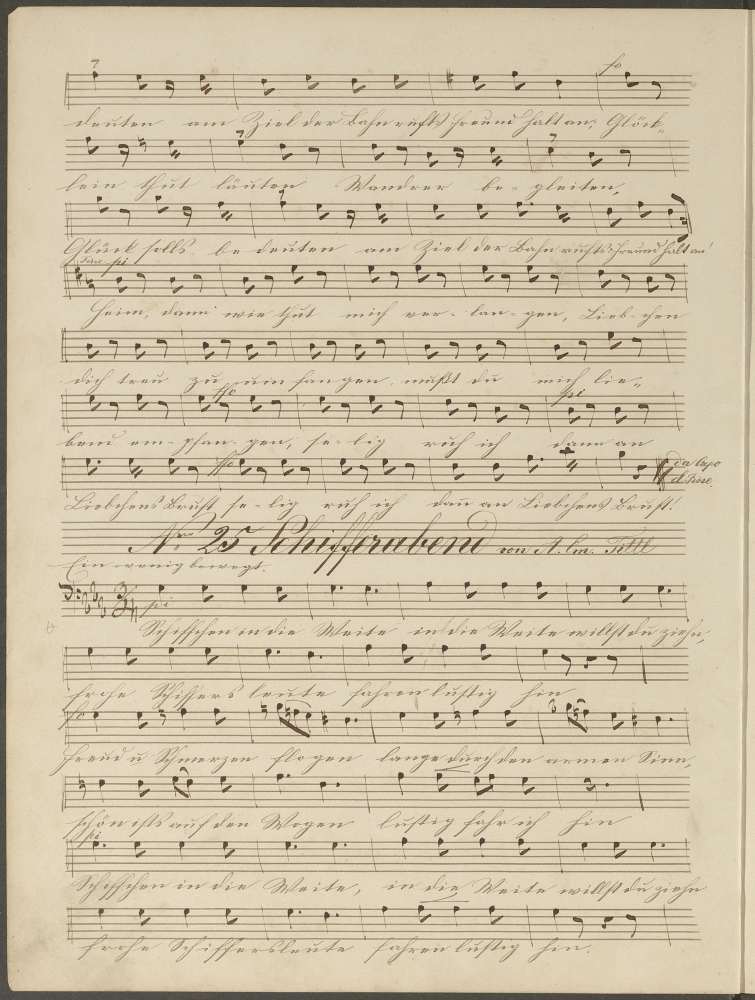 fo
deuten am Ziel der Bahn rufts Freund halt an, Glöck-
lein thut läuten Wandrer be- gleiten,
Glück solls be deuten am Ziel der Bahn rufts Freund halt an!
pi
Heim, dann wie thut mich ver- lan- gen, Lieb- chen
dich treu zu um fan gen, mußt du mich lie-
ffo pi
bend em- pfan- gen, se- lig ruh ich dann an
ffo da Capo
al Fine.
Liebchens Brust, se- lig ruh ich dann an Liebchens Brust!
Nro 25 Schifferabend von A. Em. Titll
Ein wenig bewegt.
3/4 pi
Schiffchen in die Weite in die Weite willst du ziehn,
frohe Schiffers leute fahren lustig hin
fo 3
Freud u Schmerzen flogen lange durch den armen Sinn
schön ists auf den Wogen lustig fahr ich hin
pi
Schiffchen in die Weite, in die Weite willst du ziehn
frohe Schiffersleute fahren lustig hin.